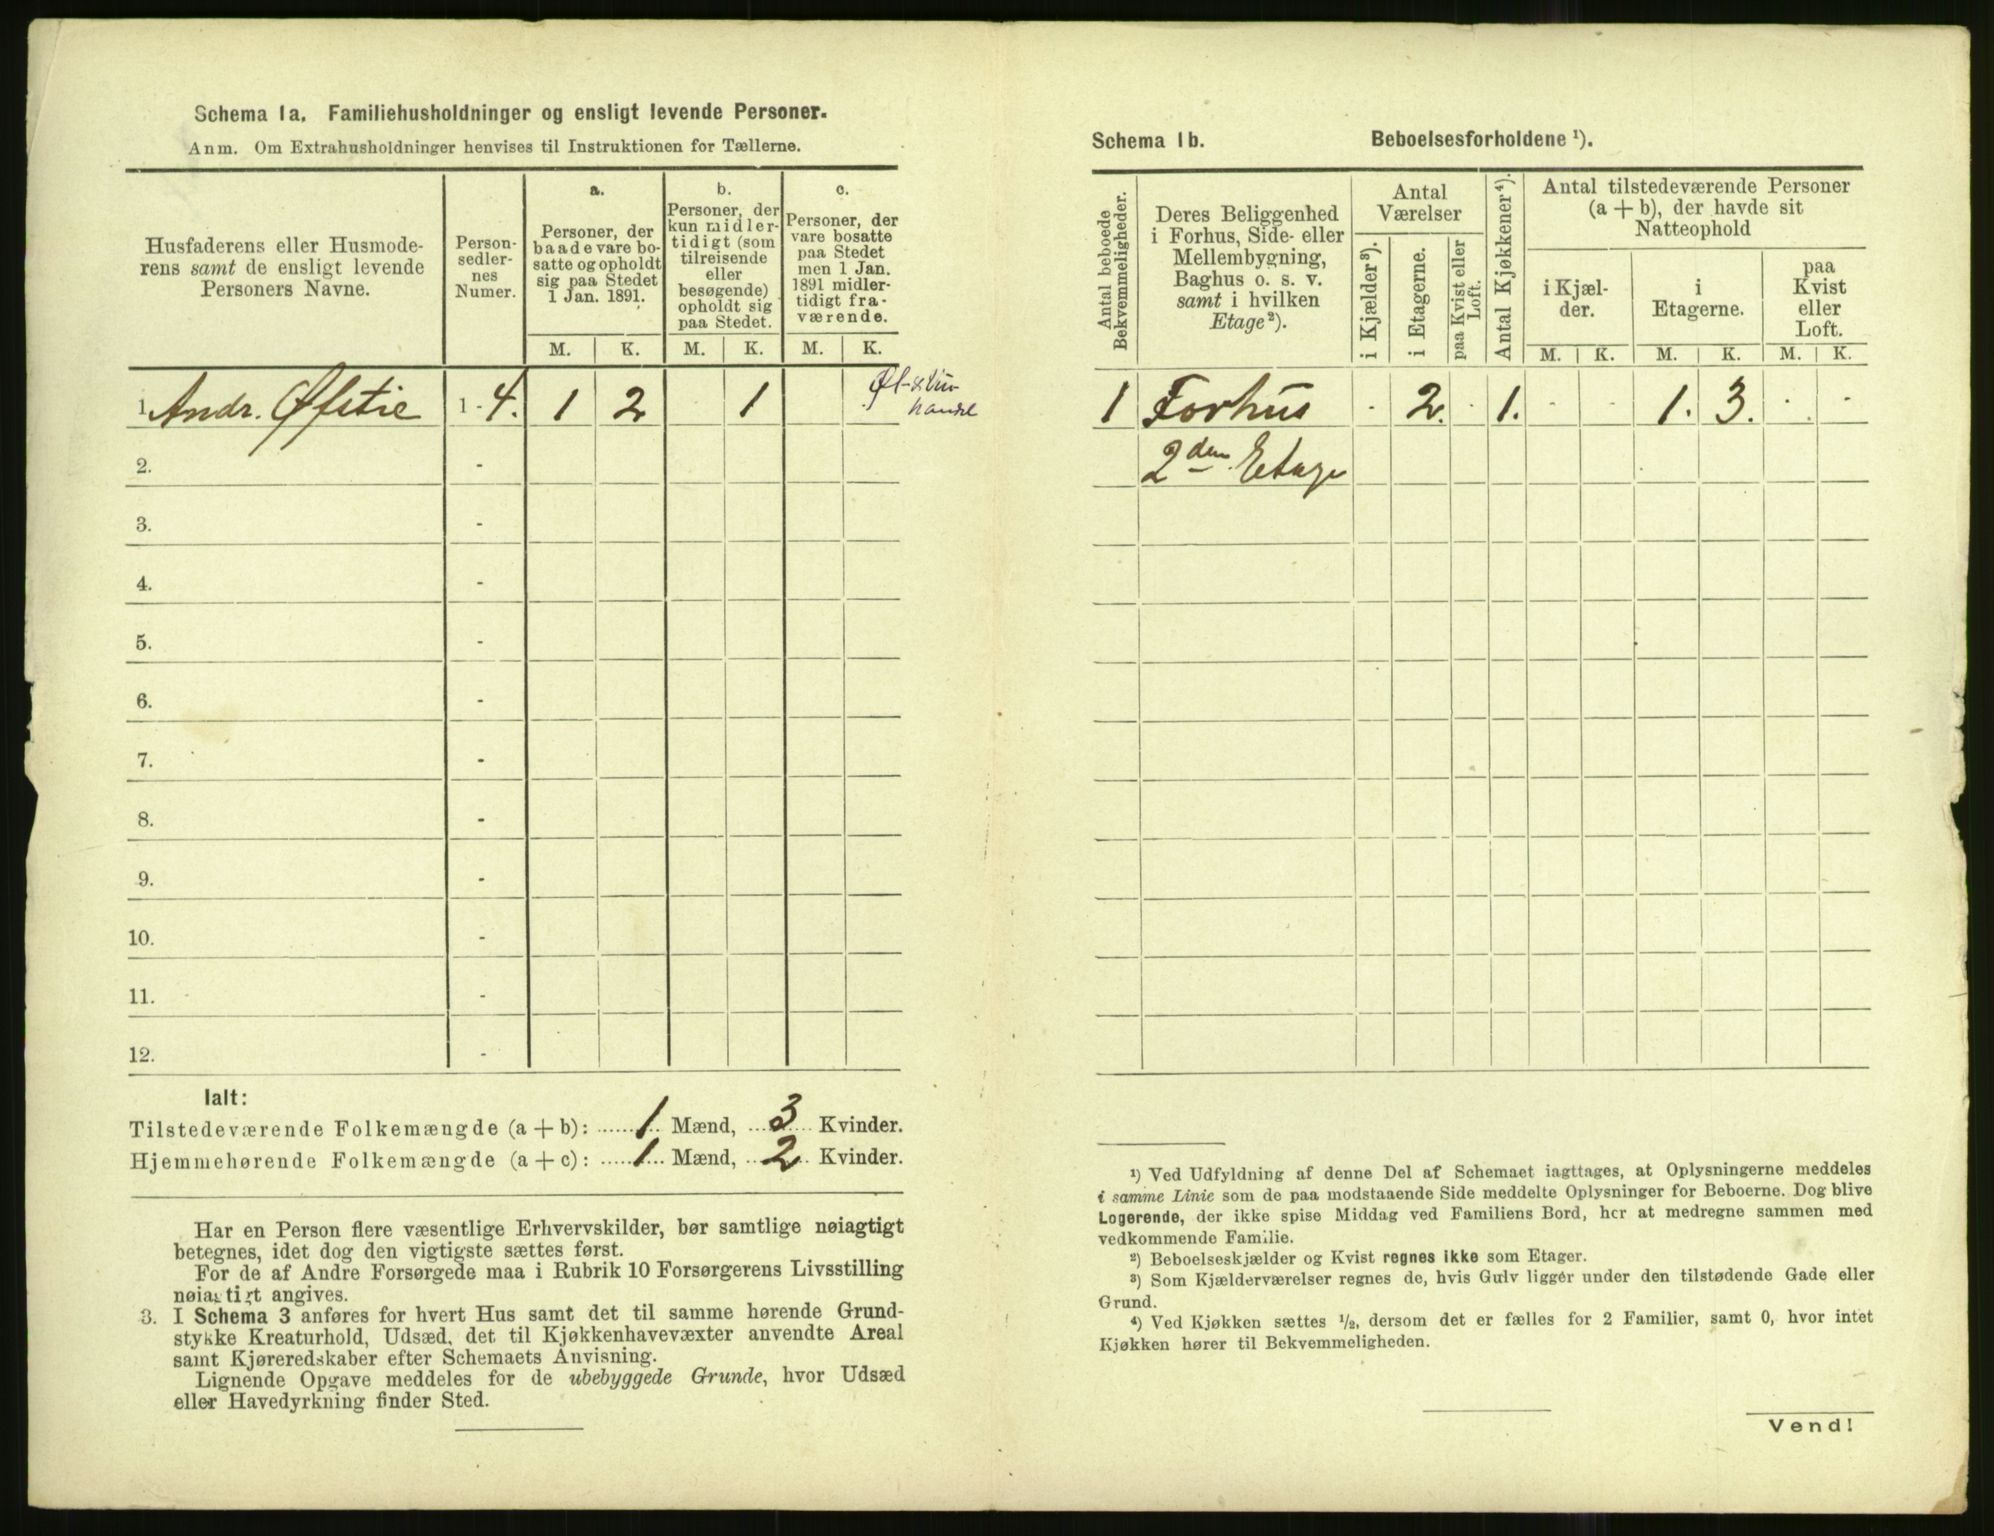 Schema 1a. Familiehusholdninger og ensligt levende Personer.
Anm. Om Extrahusholdninger henvises til Instruktionen for Tællerne.
Husfaderens eller Husmode-
rens samt de ensligt levende
Personers Navne.
Person-
sedler-
nes
Numer.
a.
Personer, der
baade vare bo-
satte og opholdt
sig paa Stedet
1 Jan. 1891.
b.
Personer, der
kun midler-
tidigt (som
tilreisende
eller
besøgende)
opholdt sig
paa Stedet.
c.
Personer, der
vare bosatte
paa Stedet
men 1 Jan.
1891 midler-
tidigt fra-
værende.
M. K. M. K. M. K.
1. Andr. Øfstie 1 - 4. 1 2 1
2. -
3. -
4. -
5. -
6. -
7. -
8. -
9. -
10. -
11. -
12. -
Ialt:
Tilstedeværende Folkemængde (a + b): 1 Mænd, 3 Kvinder.
Hjemmehørende Folkemængde (a + c): 1 Mænd, 2 Kvinder.
Har en Person flere væsentlige Erhvervskilder, bør samtlige nøiagtigt
betegnes, idet dog den vigtigste sættes først.
For de af Andre Forsørgede maa i Rubrik 10 Forsørgerens Livsstilling
nøiagtigt angives.
3. I Schema 3 anføres for hvert Hus samt det til samme hørende Grund-
stykke Kreaturhold, Udsæd, det til Kjøkkenhavevæxter anvendte Areal
samt Kjøreredskaber efter Schemaets Anvisning.
Lignende Opgave meddeles for de ubebyggede Grunde, hvor Udsæd
eller Havedyrkning finder Sted.
Schema 1b. Beboelsesforholdene ¹).
Antal beboede
Bekvemmeligheder.
Deres Beliggenhed
i Forhus, Side- eller
Mellembygning,
Baghus o. s. v.
samt i hvilken
Etage²).
Antal
Værelser
i Kjælder³).
i Etagerne.
paa Kvist eller
Loft.
Antal Kjøkkener⁴).
Antal tilstedeværende Personer
(a + b), der havde sit
Natteophold
i Kjæl-
der.
i
Etagerne.
paa
Kvist
eller
Loft.
M. K. M. K. M. K.
1 Forhus - 2. - 1. - - 1. 3. - -
2den Etage
¹) Ved Udfyldning af denne Del af Schemaet iagttages, at Oplysningerne meddeles
i samme Linie som de paa modstaaende Side meddelte Oplysninger for Beboerne. Dog blive
Logerende, der ikke spise Middag ved Familiens Bord, her at medregne sammen med
vedkommende Familie.
²) Beboelseskjælder og Kvist regnes ikke som Etager.
³) Som Kjælderværelser regnes de, hvis Gulv ligger under den tilstødende Gade eller
Grund.
⁴) Ved Kjøkken sættes ½, dersom det er fælles for 2 Familier, samt 0, hvor intet
Kjøkken hører til Bekvemmeligheden.
Vend!